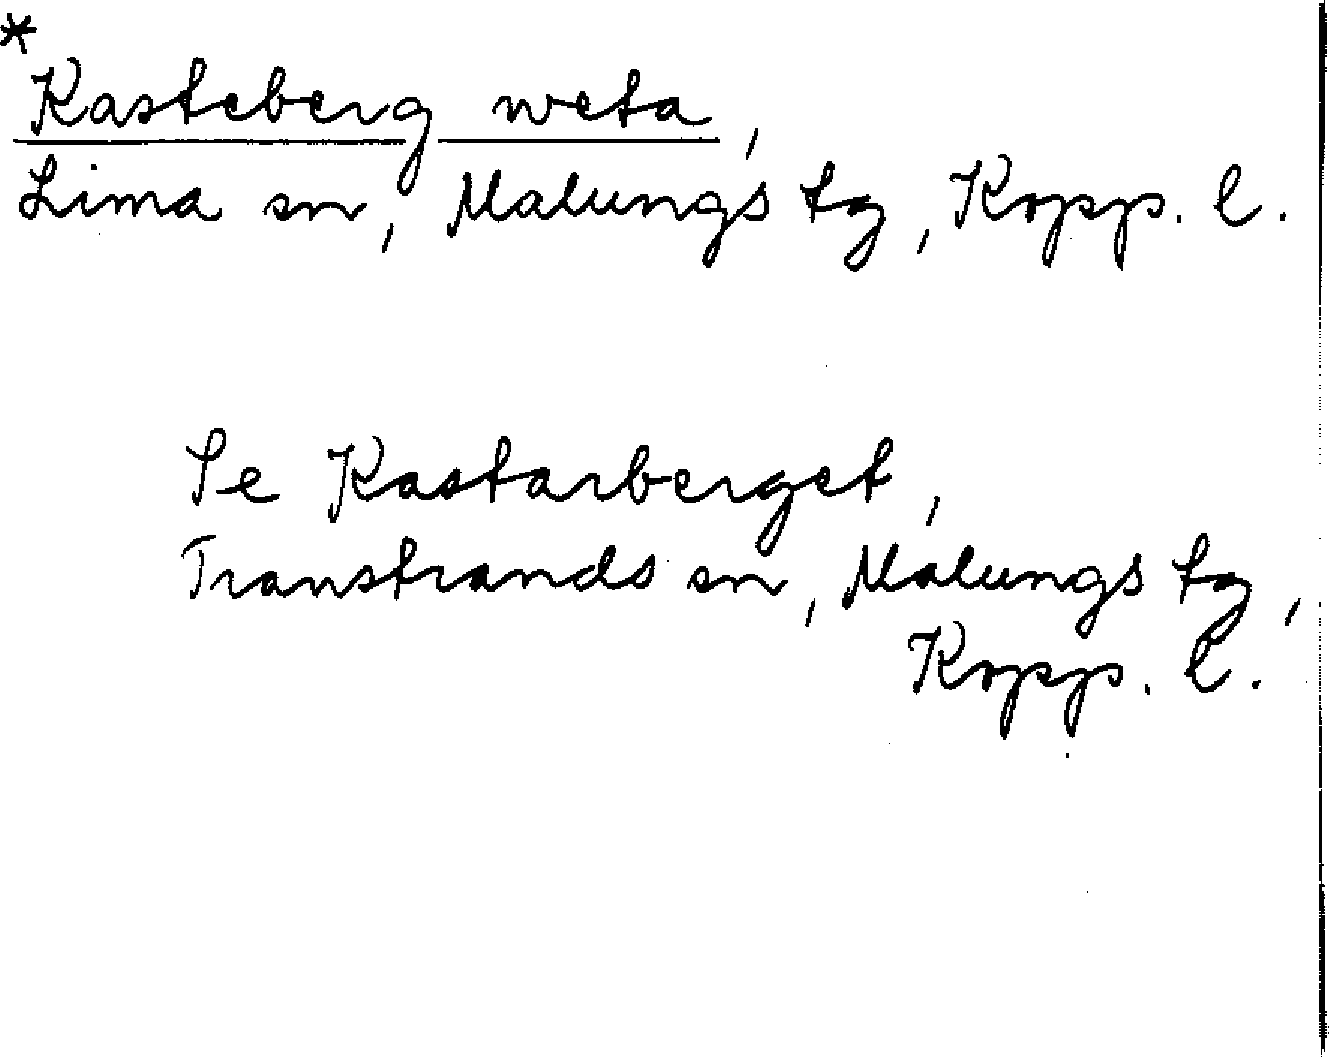 *
Kasteberg weta,
Lima sn, Malungs tg, Kopp. l.
Se Kastarberget,
Transtrands sn, Malungs tg,
Kopp. l.